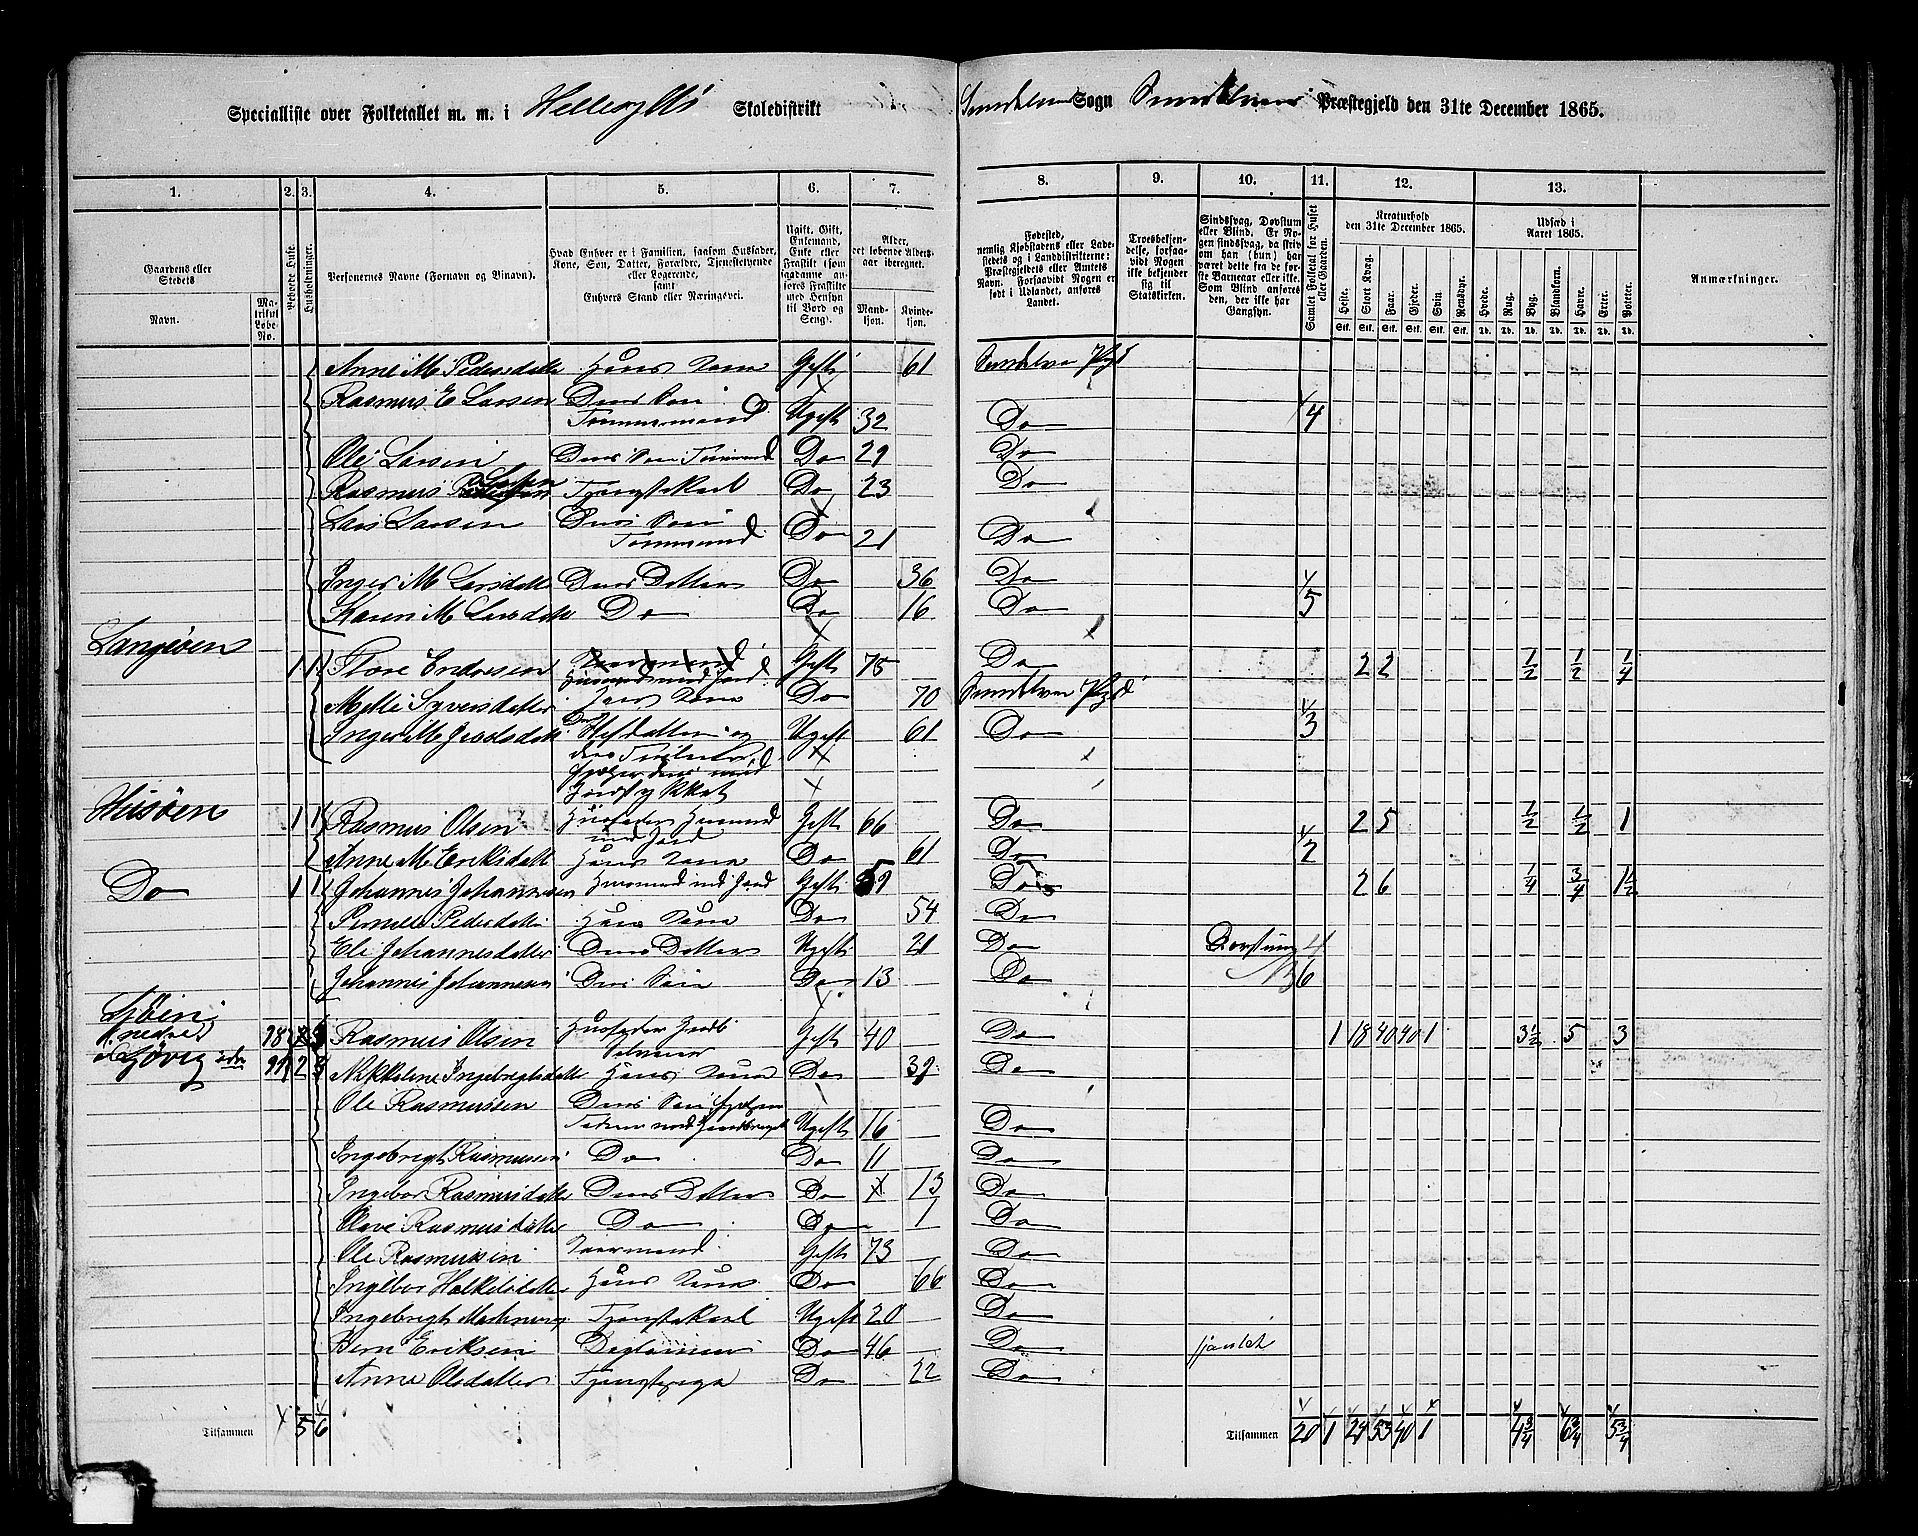 Specialliste over Folketallet m. m. i Hellesyllt Skoledistrikt Sundelven Sogn Sundelvens Præstegjeld den 31te December 1865.
1. 2. 3. 4. 5. 6. 7. 8. 9. 10. 11. 12. 13.
Gaardens eller Stedets Navn. Matrikul Løbe-No. Beboede Huse. Husholdninger.
Personernes Navne (Fornavn og Tilnavn).
Hvad Enhver er i Familien, saasom Husfader, Kone, Søn, Datter, Forældre, Tjenestetyende eller Logerende, samt Enhvers Stand eller Næringsvei.
Alder, det løbende Aldersaar iberegnet. Mandkjøn. Kvindekjøn.
Troesbekjendelse, forsaavidt Nogen ikke bekjender sig til Statskirken.
Samlet Folketal for Huset eller Gaarden.
Kreaturhold den 31te December 1865. Heste. Stort Kvæg. Faar. Gjeder. Svin. Rensdyr.
Udsæd i Aaret 1865. Hvede. Rug. Byg. Blandkorn. Havre. Erter. Poteter.
Anmærkninger.
Anne M Pedersdatter Hans Kone Gift 61 Sundelven Pgd
Rasmus E Larsen Deres Søn
Tømmermand Ugift 32 Do 4
Ole Larsen Deres Søn Do 29 Do
Rasmus Larsen Tjenestekarl Do 23 Do
Lars Larsen Deres Søn
Do 21 Do
Inger M Larsdatter Deres Datter Do 36 Do
Karen M Larsdatter Do Do 16 Do 5
Langeven
1 1 Tore Endresen Husmand med Jord Gift 75 Do 2 2 1/2 1/2 1/4
Mette Syversdatter Hans Kone Do 70 Sundelven Pgd
Inger M Ugift 61 Do 3
Husøen
1 1 Rasmus Olsen Husfader Husmand med Jord Gift 66 Do 2 5 1/2 1/2 1
Anne M Eriksdatter Hans Kone Do 61 Do 2
Do 1 1 Johannes Johannesen Husmand med Jord Gift 59 Do 2 6 1/4 3/4 1 1/2
Pernille Pedersdatter Hans Kone Do 54 Do
Eli Johannesdatter Deres Datter Ugift 21 Do Døvstum 4
Johannes Johannesen Deres Søn Do 13 Do 6
nedre
98 Rasmus Olsen Husfader Gaardb Selveier Gift 40 Do 1 18 40 40 1 3 1/2 5 3
99 2 Mikkeline Ingebrigtsdatter Hans Kone Do 39 Do
Ole Rasmussen Deres Søn hjelper
Faderen med Gaardsbruget Ugift 16 Do
Ingebrigt Rasmussen Do Do 11 Do
Ingebor Rasmusdatter Deres Datter Do 13 Do
Olave Rasmusdatter Do Do 1 Do
Ole Rasmussen Kaarmand Gift 73 Do
Ingebor Halkelsdatter Hans Kone Do 66 Do
Ingebrigt Tjenestekarl Ugift 20 Do
Bern Eriksen Do 46 Do
Anne Olsdatter Tjenestepige Do 22 Do
Tilsammen 5 6 Tilsammen 20 1 24 53 40 1 4 3/4 6 3/4 5 3/4